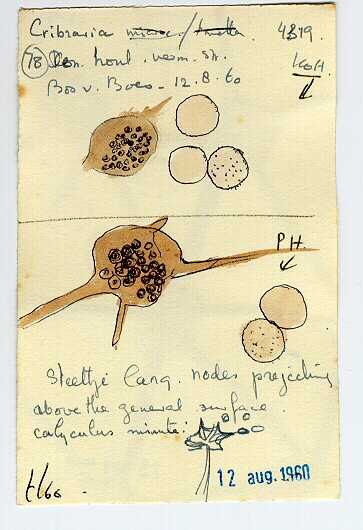 Cribraria micro./tenella. 4319.
78 Den. hout. verm. st. KOH.
Bos v. Boes - 12.8.60
P.H.
Steeltje lang. nodes projecting
above the general surface.
calyculus minute!
12 aug. 1960